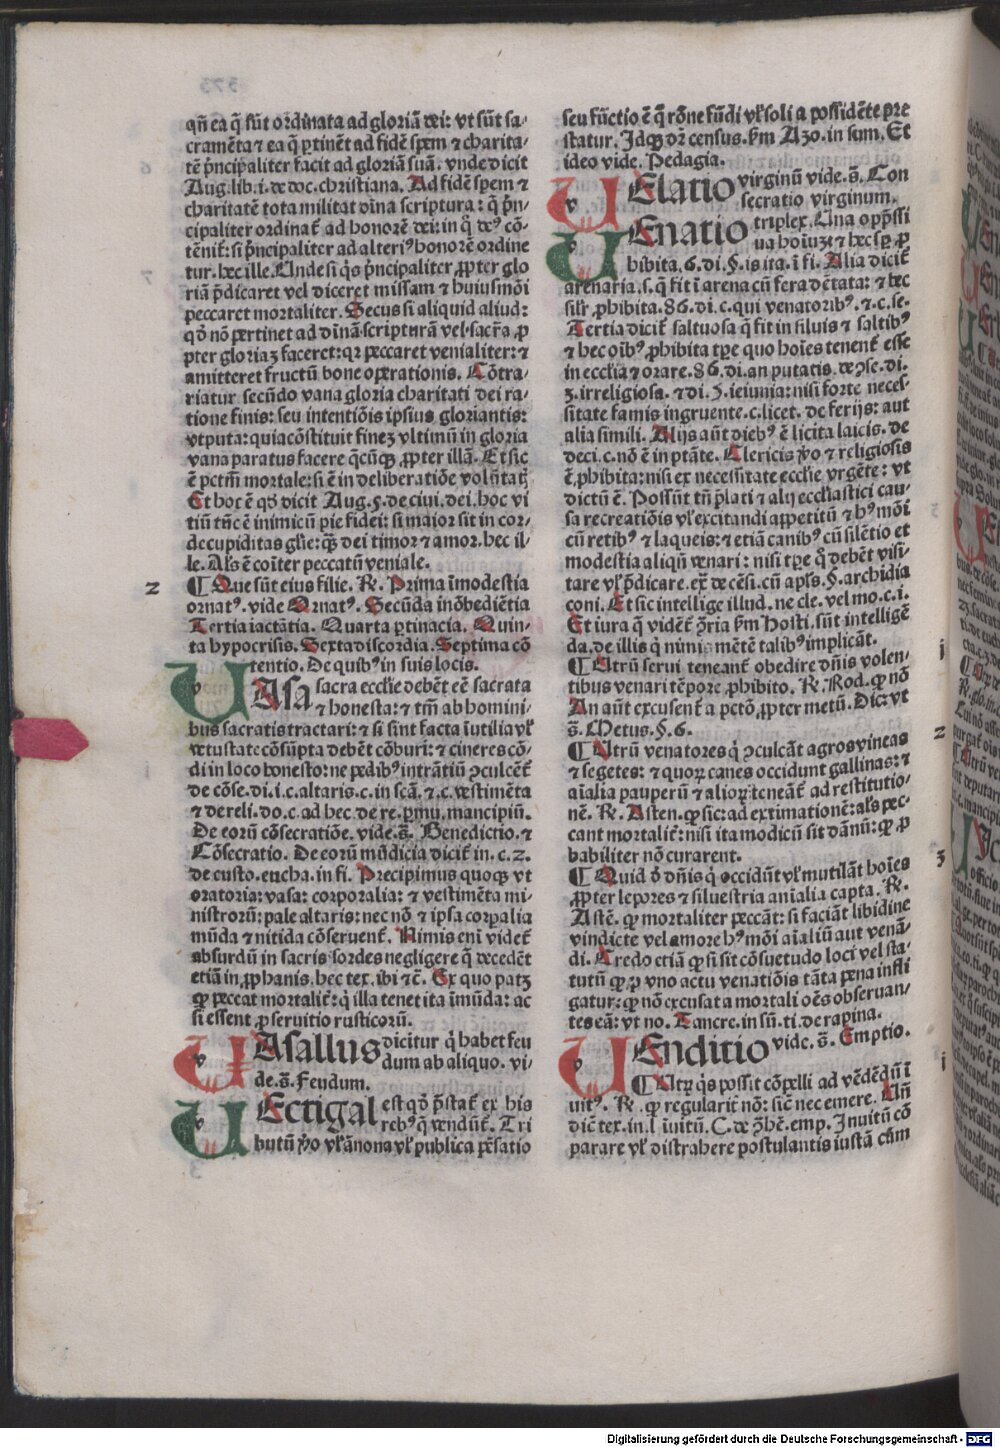 qñ ea q̄ sūt ordinata ad gloriā dei: vt sūt sa-
cramēta ⁊ ea q̄ ꝑtinēt ad fidē spem ⁊ charita-
tē p̄ncipaliter facit ad gloriā suā. vnde dicit
Aug. lib. i. de doc. christiana. Ad fidē spem ⁊
charitatē tota militat oīna scriptura: q̄ p̄n-
cipaliter ordinat᷑ ad honorē dei: in q̄ deꝰ cō-
tēnit᷑: si p̄ncipaliter ad alteriꝰ honorē ordine
tur. hec ille. Unde si q̇s p̄ncipaliter ꝓpter glo
riā p̄dicaret vel diceret missam ⁊ huiusmōi
peccaret mortaliter. Secus si aliquid aliud:
qđ nō pertinet ad dīnā scripturā vel sacrā, ꝓ
pter gloriaꝫ faceret: qꝛ peccaret venialiter: ⁊
amitteret fructū bone operationis. Cōtra-
riatur secūdo vana gloria charitati dei ra-
tione finis: seu intentiōis ipsius gloriantis:
vtputa: quia cōstituit fineꝫ vltimū in gloria
vana paratus facere q̄cūqꝫ ꝓpter illā. Et sic
ē pctm̄ mortale: si ē in deliberatiōe volūtatꝭ
Et hoc ē qđ dicit Aug. 5. de ciui. dei. hoc vi
tiū tn̄c ē inimicū pie fidei: si maior sit in cor-
de cupiditas gl̄ie: qꝫ dei timor ⁊ amor. hec il-
le. Al̄s ē cōiter peccatū veniale.
2
¶ Que sūt eius filie. R̃. Prima īmodestia
ornatꝰ. vide Ornatꝰ. Secūda inōbediētia
Tertia iactātia. Quarta ꝑtinacia. Quin-
ta hypocrisis. Sexta discordia. Septima cō
tentio. De quibꝰ in suis locis.
UAsa sacra eccl̄ie debēt eē sacrata
⁊ honesta: ⁊ tm̄ ab homini
bus sacratis tractari: ⁊ si sint facta īutilia vl̕
vetustate cōsūpta debēt cōburi: ⁊ cineres cō-
di in loco honesto: ne pedibꝰ intrātiū ꝯculcēt᷑
de cōse. di. i. c. altaris. c. in scā. ⁊ c. vestimēta
⁊ de reli. do. c. ad hec de re. ꝑmu. mancipiū.
De eorū cōsecratiōe. vide. s̄. Benedictio. ⁊
Cōsecratio. De eorū mūdicia dicit᷑ in. c. 2.
de custo. eucha. in fi. Precipimus quoqꝫ vt
oratoria: vasa: corporalia: ⁊ vestimēta mi-
nistrorū: pale altaris: nec nō ⁊ ipsa corꝑalia
mūda ⁊ nitida cōseruent᷑. Nimis eni videt᷑
absurdū in sacris sordes negligere q̄ dedecēt
etiā in ꝓphanis. hec tex. ibi ⁊c̄. Ex quo patꝫ
ꝙ peccat mortalit᷑: q̇ illa tenet ita īmūda: ac
si essent ꝓ seruitio rusticorū.
UAsallus dicitur q̇ habet feu
dum ab aliquo. vi-
de. s̄. Feudum.
UEctigal est qđ p̄stat᷑ ex his
rebꝰ q̄ vendūt᷑. Tri
butū ṽo vl̕ ānona vl̕ publica pēsatio
seu fūctio ē q̄ rōne fūdi vl̕ soli a possidēte pre
statur. Idqꝫ dꝛ census. sm̄ Azo. in sum. Et
ideo vide. Pedagia.
UElatio virginū vide. s̄. Con
secratio virginum.
UEnatio triplex. Una opp̄ssi
ua hoīuꝫ: ⁊ hec sꝑ ꝓ
hibita. 6. di. §. is ita. ī fi. Alia dicit᷑
arenaria. s. q̄ fit ī arena cū fera dētata: ⁊ hec
sil̄r ꝓhibita. 86. di. c. qui venatoribꝰ. ⁊ c. se.
Tertia dicit᷑ saltuosa q̄ fit in siluis ⁊ saltibꝰ
⁊ hec oībꝰ ꝓhibita tp̄e quo hoīes tenent᷑ esse
in ecclīa ⁊ orare. 86. di. an putatis. de ꝯse. di.
3. irreligiosa. ⁊ di. 5. ieiunia: nisi forte neces-
sitate famis ingruente. c. licet. de ferijs: aut
alia simili. Alijs aūt diebꝰ ē licita laicis. de
deci. c. nō ē in ptāte. Clericis ṽo ⁊ religiosis
ē ꝓhibita: nisi ex necessitate eccl̄ie vrgēte: vt
dictū ē. Possūt tn̄ p̄lati ⁊ alij ecclīastici cau-
sa recreatiōis vl̕ excitandi appetitū ⁊ hꝰ mōi
cū retibꝰ ⁊ laqueis: ⁊ etiā canibꝰ cū silētio et
modestia aliqñ venari: nisi tp̄e q̄ debēt visi-
tare vl̕ p̄dicare. ex̄. de cēsi. cū apl̄s. §. archidia
coni. Et sic intellige illud. ne cle. vel mo. c. i.
Et iura q̄ vident᷑ ꝯ̄ria sm̄ Hosti. sūt intelligē
da. de illis q̇ nimis mētē talibꝰ implicāt.
i
¶ Utrū serui teneant᷑ obedire dn̄is volen-
tibus venari tēpore ꝓhibito. R̃. Rod. ꝙ nō
An aūt excusent᷑ a pctō, ꝓpter metū. Dic vt
s̄. Metus. §. 6.
2
¶ Utrū venatores q̇ ꝯculcāt agros vineas
⁊ segetes: ⁊ quoꝝ canes occidunt gallinas: ⁊
aīalia pauperū ⁊ alioꝝ: teneāt᷑ ad restitutio-
nē. R̃. Asten. ꝙ sic: ad extimationē: al̄s pec-
cant mortalit᷑: nisi ita modicū sit dānū: ꝙ ꝓ
babiliter nō curarent.
3
¶ Quid ō dn̄is q̇ occidūt vl̕ mutilāt hoīes
ꝓpter lepores ⁊ siluestria anialia capta. R̃.
Astē. ꝙ mortaliter peccāt: si faciāt libidine
vindicte vel amore hꝰ mōi aīaliū aut venā-
di. Credo etiā ꝙ si sit cōsuetudo loci vel sta-
tutū ꝙ ꝓ vno actu venatiōis tāta pena infli
gatur: ꝙ nō excusat a mortali oēs obseruan-
tes eā: vt no. Tancre. in sū. ti. de rapina.
UEnditio vide. s̄. Emptio.
i
¶ Utꝝ q̇s possit cōpelli ad vēdēdū ī
uitꝰ. R̃. ꝙ regularit᷑ nō: sic̄ nec emere. Uñ
dic̄ tex. in. l. inuitū. C. de ꝯ̄hē. emp. Inuitū cō
parare vl̕ distrahere postulantis iustā cām
Digitalisierung gefördert durch die Deutsche Forschungsgemeinschaft - DFG